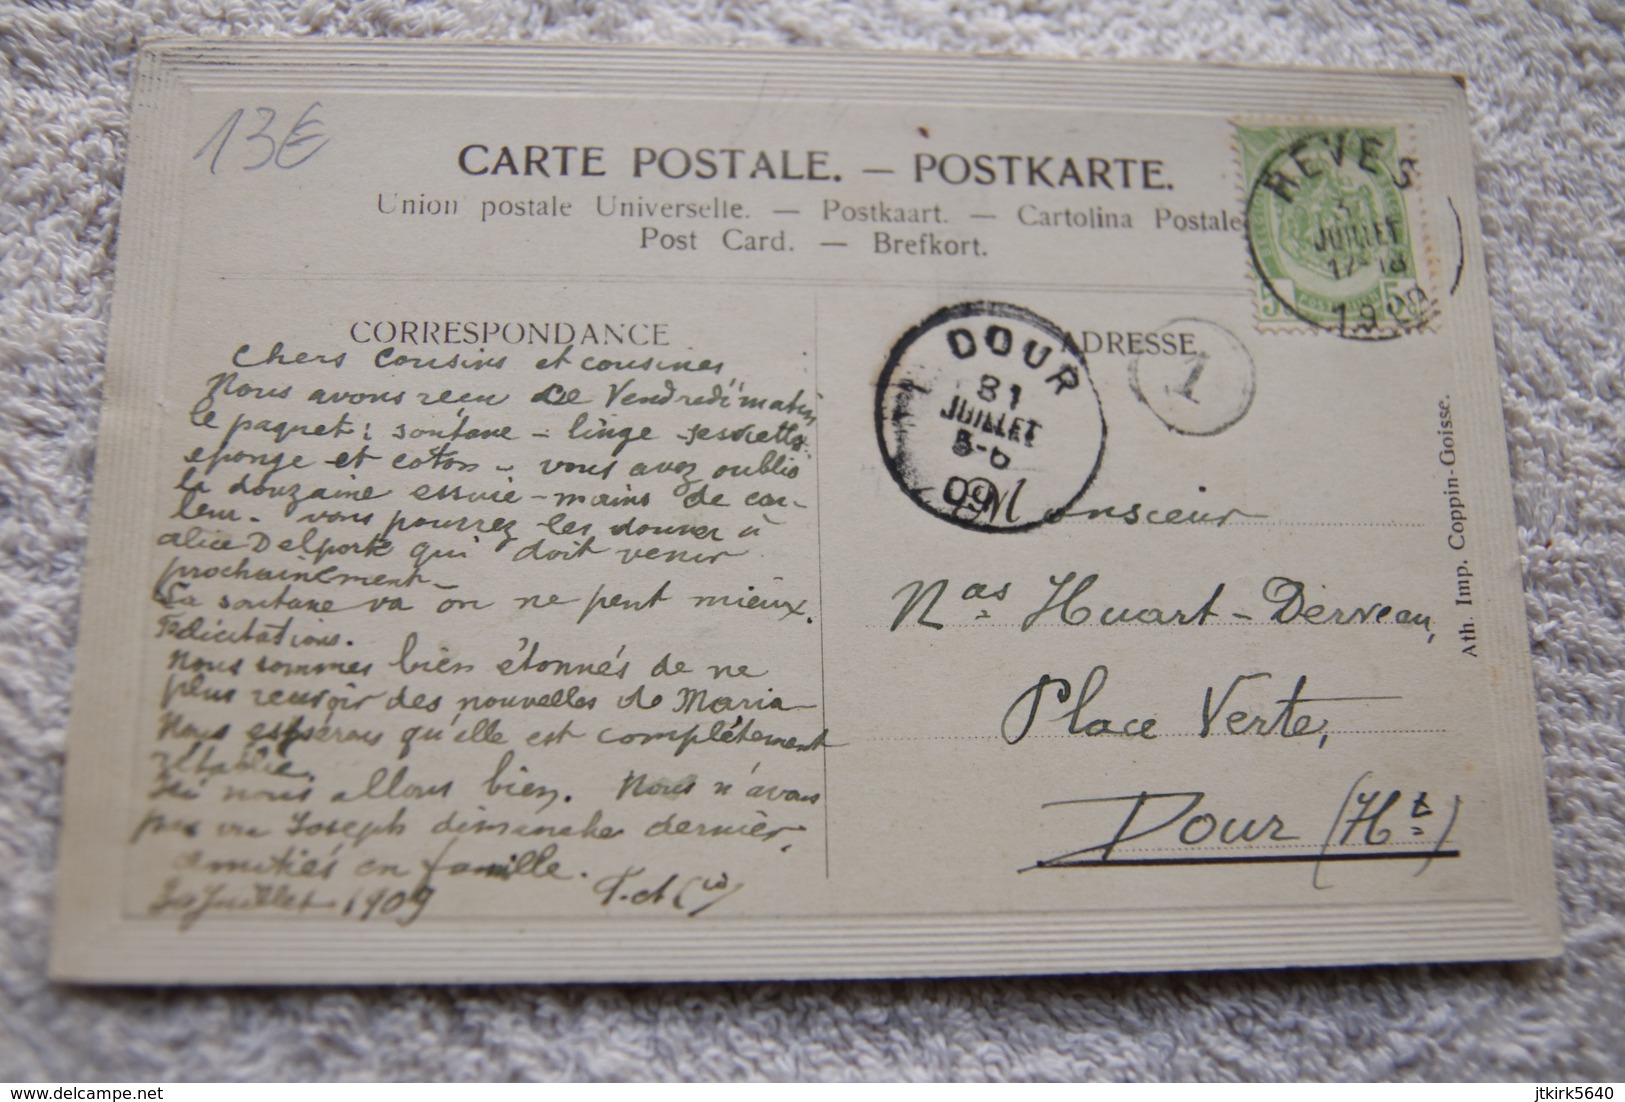 13€
CARTE POSTALE. — POSTKARTE.
Union postale Universelle. — Postkaart. — Cartolina Postale
Post Card. — Brefkort.
HEVES
JUILLET
17-18
1909
CORRESPONDANCE
Chers Cousins et cousines
Nous avons reçu Le Vendredi matin
le paquet: soutane - linge - serviette
eponge et coton - vous avez oublié
la douzaine essuie-mains de cou-
leur. vous pourrez les donner à
alice Delporte qui doit venir
prochainement -
La soutane va on ne peut mieux.
Félicitations.
Nous sommes bien étonnés de ne
plus recevoir des nouvelles de Maria
Nous espérons qu'elle est complètement
rétablie.
Ici nous allons bien. Nous n'avons
pas vu Joseph dimanche dernier.
amitiés en famille.
30 Juillet 1909
DOUR
31
JUILLET
5-6
09
ADRESSE
1
Monsieur
Nas Huart-Derveau,
Place Verte,
Dour (Ht)
Ath. Imp. Coppin-Goisse.
delcampe.net
jtkirk5640